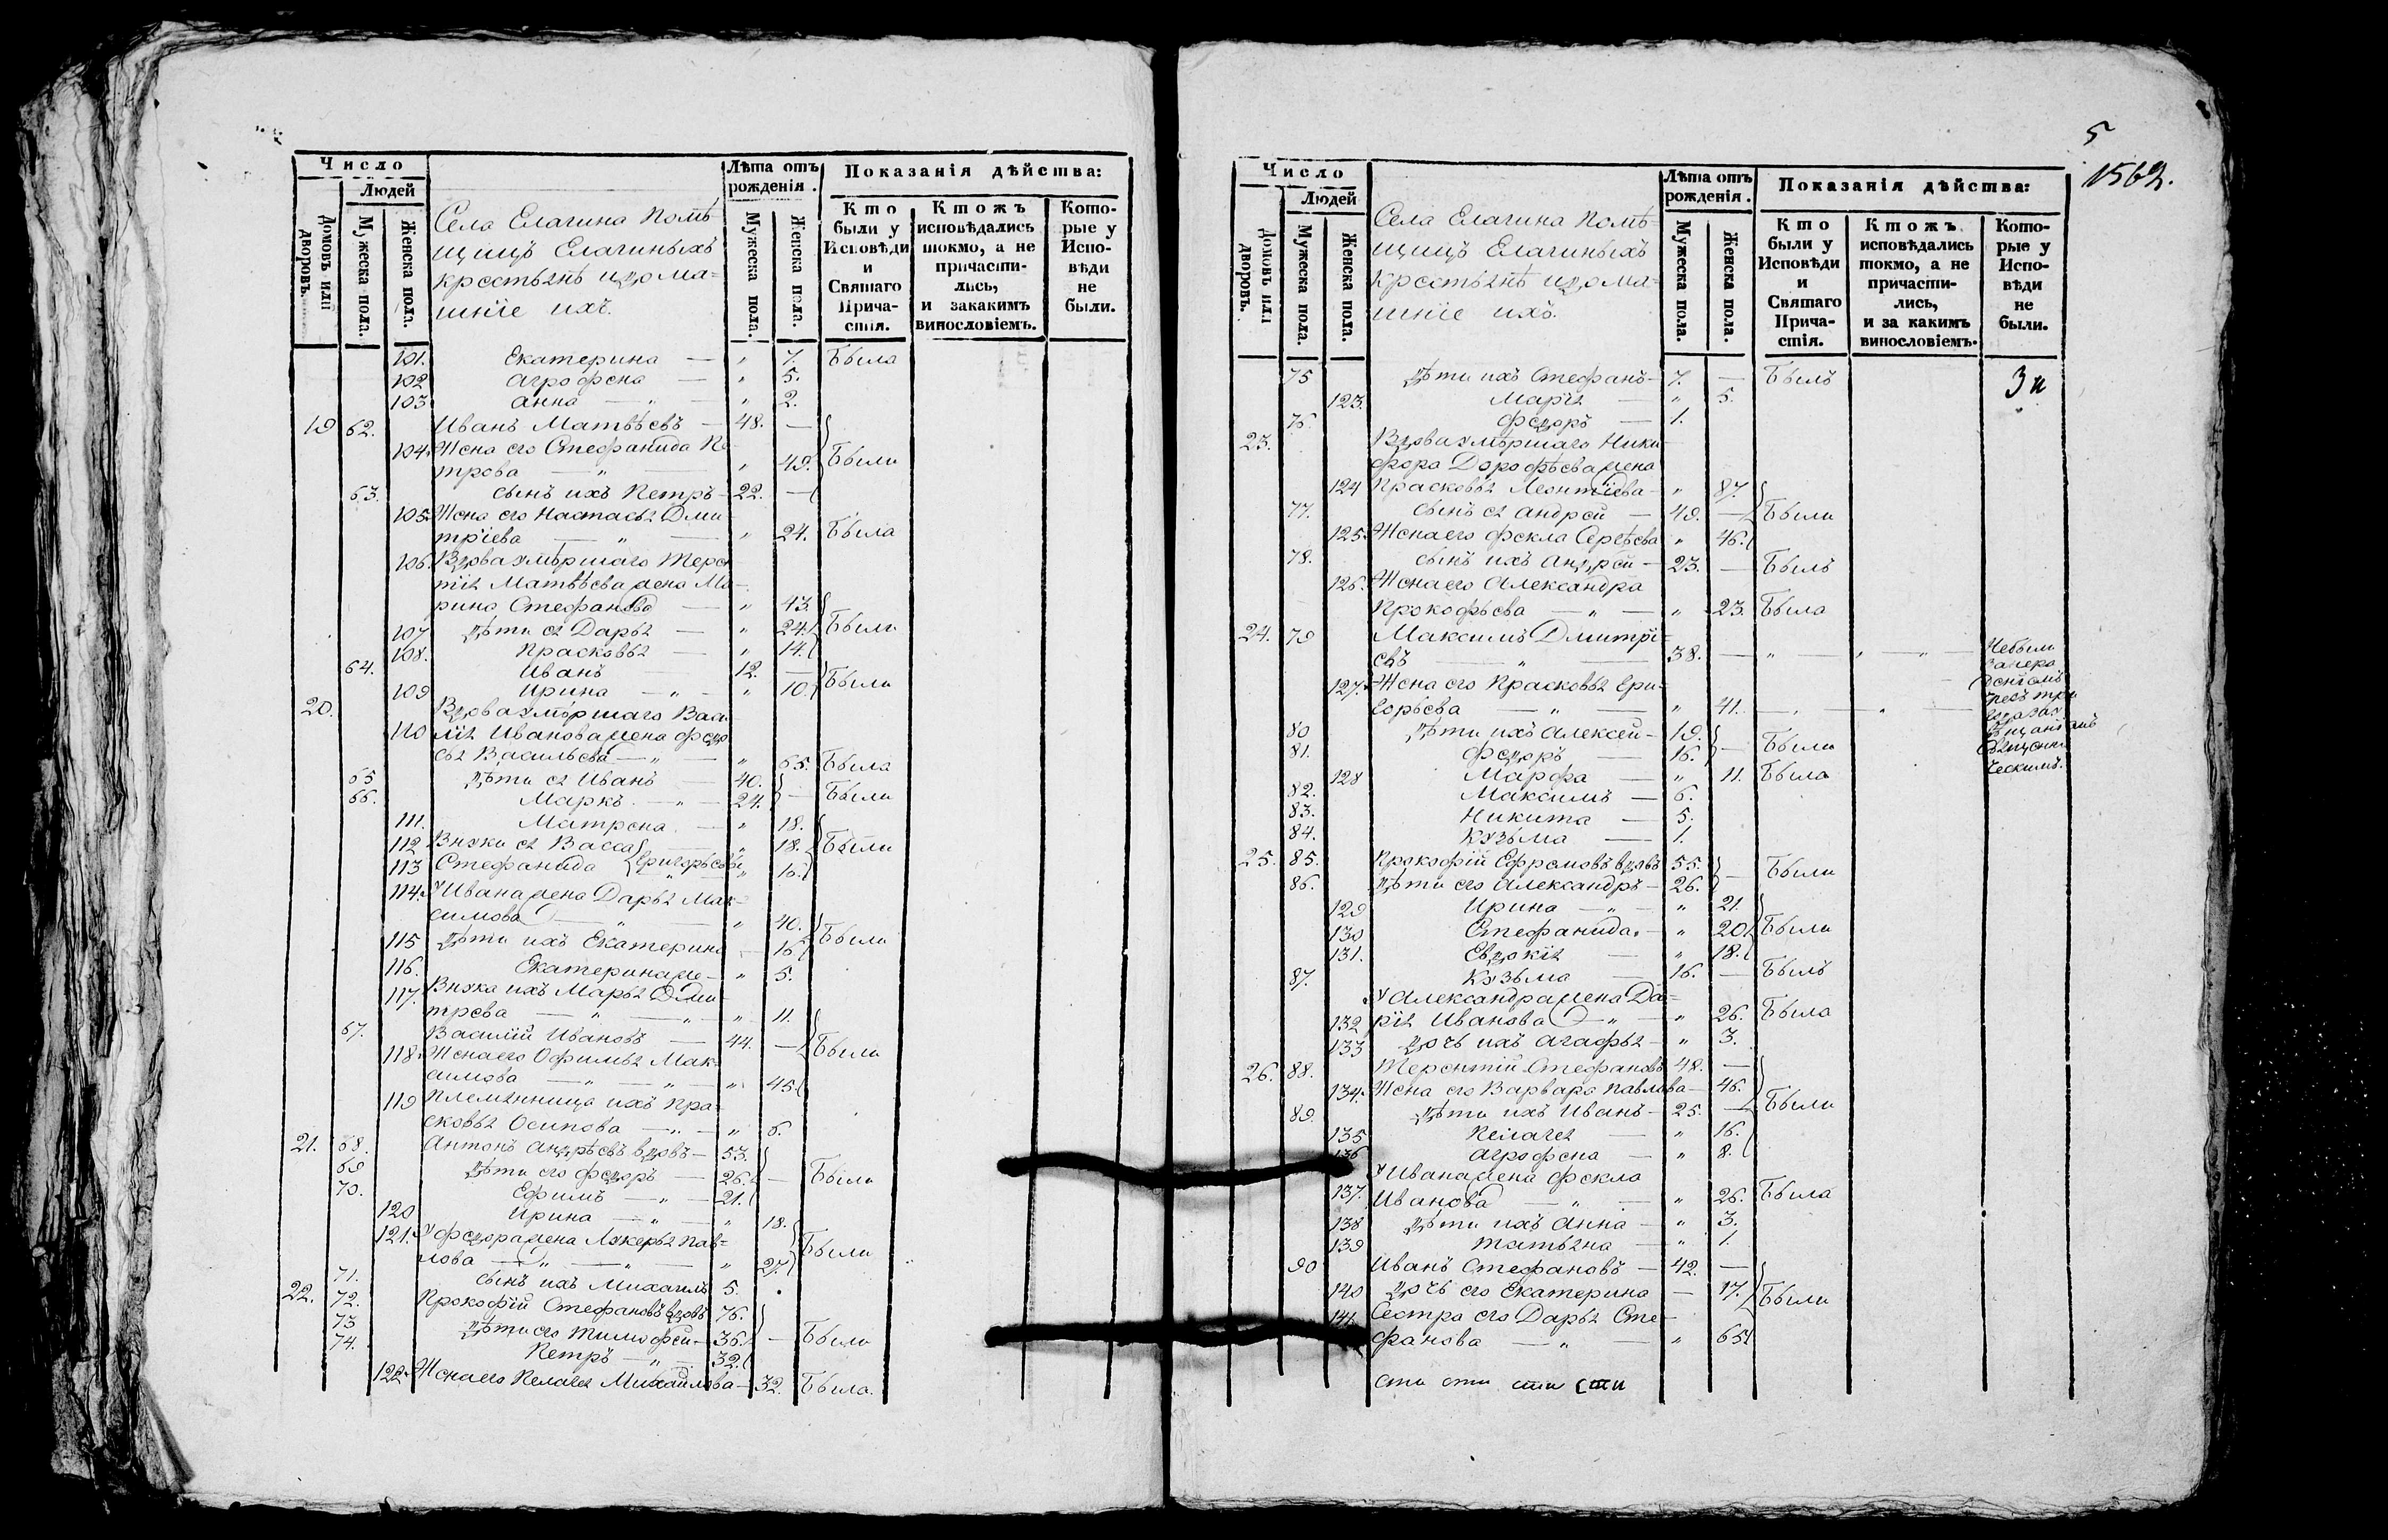 Число
Людей
Домовъ или дворовъ.
Мужеска пола.
Женска пола.
Села Елагина помѣ-
щицъ Елагиныхъ
крестьянѣ идома-
шніе ихъ.
Лѣта отъ рожденія.
Мужеска пола.
Женска пола.
Показанія дѣйства:
Кто были у Исповѣди и Святаго Прича-стія.
Ктожъ исповѣдались токмо, а не причасти-лись, и закакимъ винословіемъ.
Кото-рые у Испо-вѣди не были.
101. Екатерина — " 7. Была
102 Агрофена — " 5.
103 Анна — " — " 2.
19 62. Иванъ Матвѣевъ — 48. —
104. Жена его Стефанида Пе
трова — " — " 49. Были
63. сынъ ихъ Петръ — 22. —
105. Жена его Настасья Дми
тріева — " — " 24. Была
106. Вдова умѣршаго Терен
тія Матвѣева жена Ма-
рина Стефанова — " 43.
107 дѣти ея Дарья — " 24. Были
108. Прасковья — " 14.
64. Иванъ — 12. —
109 Ирина — " — " 10. Были
20. Вдова умѣршаго Васи
110 лія Иванова жена Федо
сья Васильева — " — " 65. Была
65 дѣти ея Иванъ — 40.
66. Маркъ — " — 24. — Были
111. Матрена — " 18.
112 Внуки ея Васса — " 18. Были
113 Стефанида Григорьевы " 16.
114. У Ивана жена Дарья Мак-
симова — " — " 40.
115 дѣти ихъ Екатерина — 16 Были
116. Екатерина же — " 5.
117. Внука ихъ Марья Дми-
трева — " — " — " 11.
67. Василій Ивановъ — 44. —
118. Жена его Офимья Мак- Были
симова — " — " — " 45.
119 Племянница ихъ Пра-
сковья Осипова — " — " 6.
21. 68. Антонъ Андрѣевъ вдовъ — 53.
69 дѣти его Федоръ — 26. — Были
70. Ефимъ — " — 21.
120 Ирина — " — " 18.
121. У Федора жена Лукерья Пав- Были
лова — " — " — " 27.
71. сынъ ихъ Михаилъ 5.
22. 72. Прокофій Стефановъ вдовъ 76.
73 дѣти его Тимофей — 36. — Были
74. Петръ — " — 32.
122. Жена его Пелагея Михайлова — 32. Была.
5
1562.
Число
Людей
Домовъ или дворовъ.
Мужеска пола.
Женска пола.
Села Елагина помѣ-
щицъ Елагиныхъ
крестьянѣ идома-
шніе ихъ.
Лѣта отъ рожденія.
Мужеска пола.
Женска пола.
Показанія дѣйства:
Кто были у Исповѣди и Святаго Прича-стія.
Ктожъ исповѣдались токмо, а не причасти-лись, и за какимъ винословіемъ.
Кото-рые у Испо-вѣди не были.
75 дѣти ихъ Стефанъ — 7. — Былъ
123. Марія — " 5.
76. Федоръ — 1.
23. Вдова умѣршаго Ники
фора Дорофѣева жена
124 Прасковья Леонтіева — " 87.
77. сынъ ея Андрей — 49. — Были
125. Жена его Фекла Сергѣева " 46.
78. сынъ ихъ Андрей — 23. — Былъ
126. Жена его Александра
Прокофьева — " — " 23. Была
24. 79 Максимъ Дмитрі-
евъ — " — 38. — " — " — " — Небыли
127. Жена его Прасковья Гри-
горьева — " — " 41. — " — " —
80 дѣти ихъ Алексей — 19.
81. Федоръ — 16. — Были
128 Марфа — " 11. Была
82. Максимъ — 6.
83. Никита — 5.
84. Кузьма — 1.
25. 85. Прокофій Ефремовъ вдовъ 55.
86. дѣти его Александръ — 26. — Были
129 Ирина — " — " 21.
130 Стефанида. — " 20. Были
131. Евдокія — " 18.
87. Кузьма — 16. — Былъ
У Александра жена Да-
132 рія Иванова — " — " 26. Была
133 дочь ихъ Агафья — " 3.
26. 88. Терентій Стефановъ 48. —
134. Жена его Варвара Павлова — 46.
89. дѣти ихъ Иванъ — 25. — Были
135 Пелагея — " 16.
136 Агрофена — " 8.
У Ивана жена Фекла
137. Иванова — " — " 26. Была
138 дѣти ихъ Анна — " 3.
139 Татьяна — " 1.
90 Иванъ Стефановъ — 42. —
140 дочь его Екатерина — 17. Были
141. Сестра его Дарья Сте-
фанова — " — " 65.